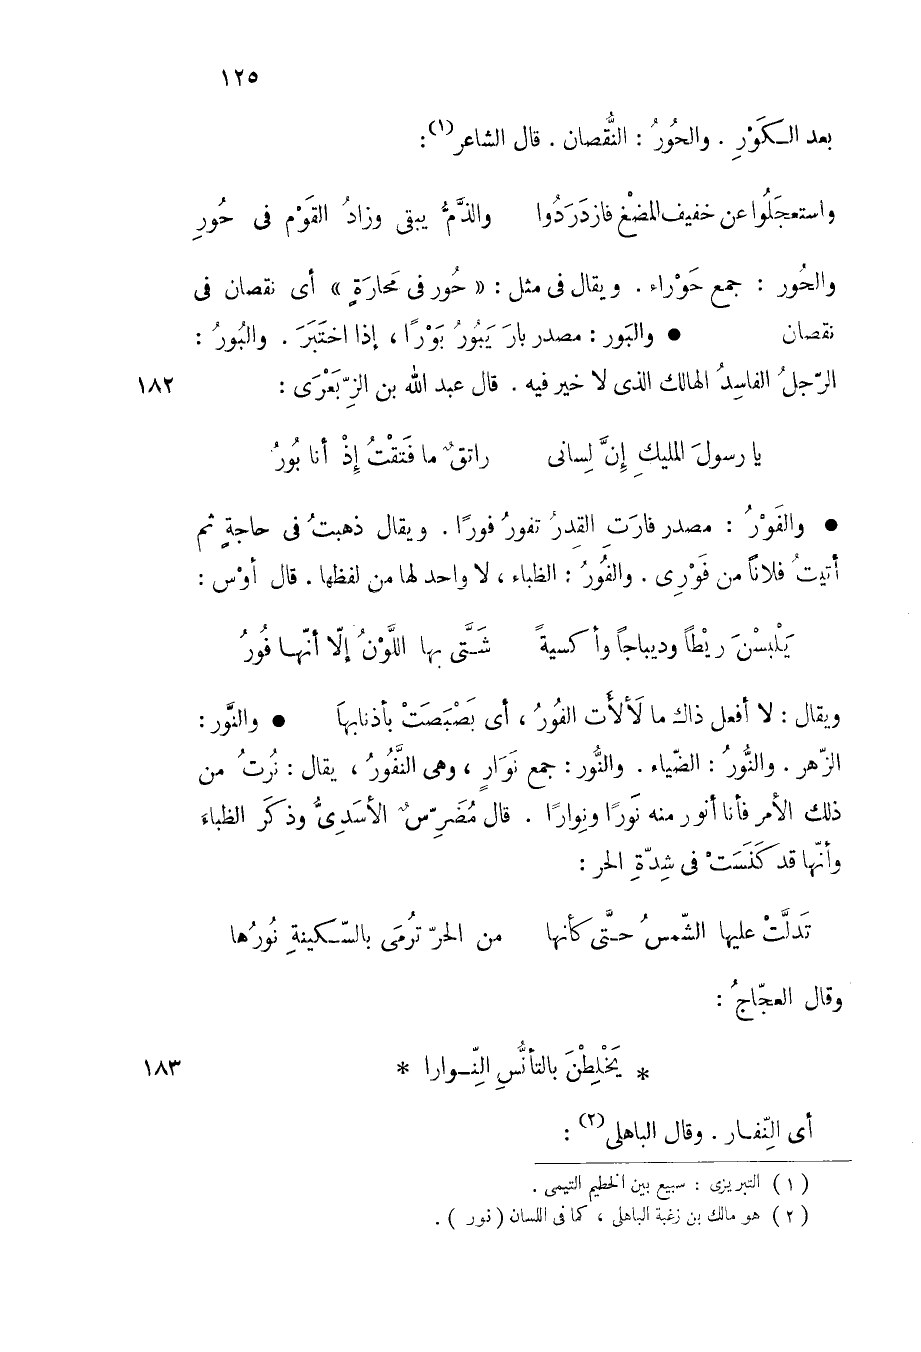 ١٢٥
بعد الكَوْرِ . والحُورُ : النُّقصان . قال الشاعر(١) :
واستعجَلُوا عن خفيف المضْغ فازدَرَدُوا والذَّمُّ يبقى وزادُ القَوْم فى حُورِ
والحُور : جمع حَوْراء . ويقال فى مثل : « حُور فى مَحارَةٍ » أى نقصان فى
نقصان ● والبَور : مصدر بارَ يَبُورُ بَوْرًا ، إذا اختَبَرَ . والبُورُ :
الرّجلُ الفاسِدُ الهالك الذى لا خير فيه . قال عبد الله بن الزِّبَعْرَى : ١٨٢
يا رسولَ المليكِ إِنَّ لِسانى راتقٌ ما فَتَقْتُ إِذْ أنا بُورُ
● والفَوْرُ : مصدر فارَتِ القِدرُ تفورُ فورًا . ويقال ذهبتُ فى حاجةٍ ثم
أتيتُ فلانًا من فَوْرِى . والفُورُ : الظباء ، لا واحد لها من لفظها . قال أوْس :
يَلْبسْنَ ريْطاً وديباجاً وأكسيةً شَتَّى بها اللَّوْنُ إلّا أنّها فُورُ
ويقال : لا أفعل ذاك ما لَألأَت الفُورُ ، أى بَصْبَصَتْ بأذنابها ● والنَّور :
الزّهر . والنُّورُ : الضّياء . والنُّور : جمع نَوَارٍ ، وهى النَّفُورُ ، يقال : نُرتُ من
ذلك الأمر فأنا أنور منه نَورًا ونِوارًا . قال مُضَرِّسٌ الأسَدِىُّ وذكَر الظباءَ
وأنّها قد كَنَسَتْ فى شِدّةِ الحر :
تَدلَّتْ عليها الشّمسُ حتَّى كأنها من الحرّ تُرمَى بالسّكينةِ نُورُها
وقال العجّاجُ :
* يَخْلِطْنَ بالتأنُّسِ النِّوارا * ١٨٣
أى النِّفار . وقال الباهلى(٢) :
( ١ ) التبريزى : سبيع بين الخطيم التيمى .
( ٢ ) هو مالك بن زغبة الباهلى ، كما فى اللسان ( نور ) .